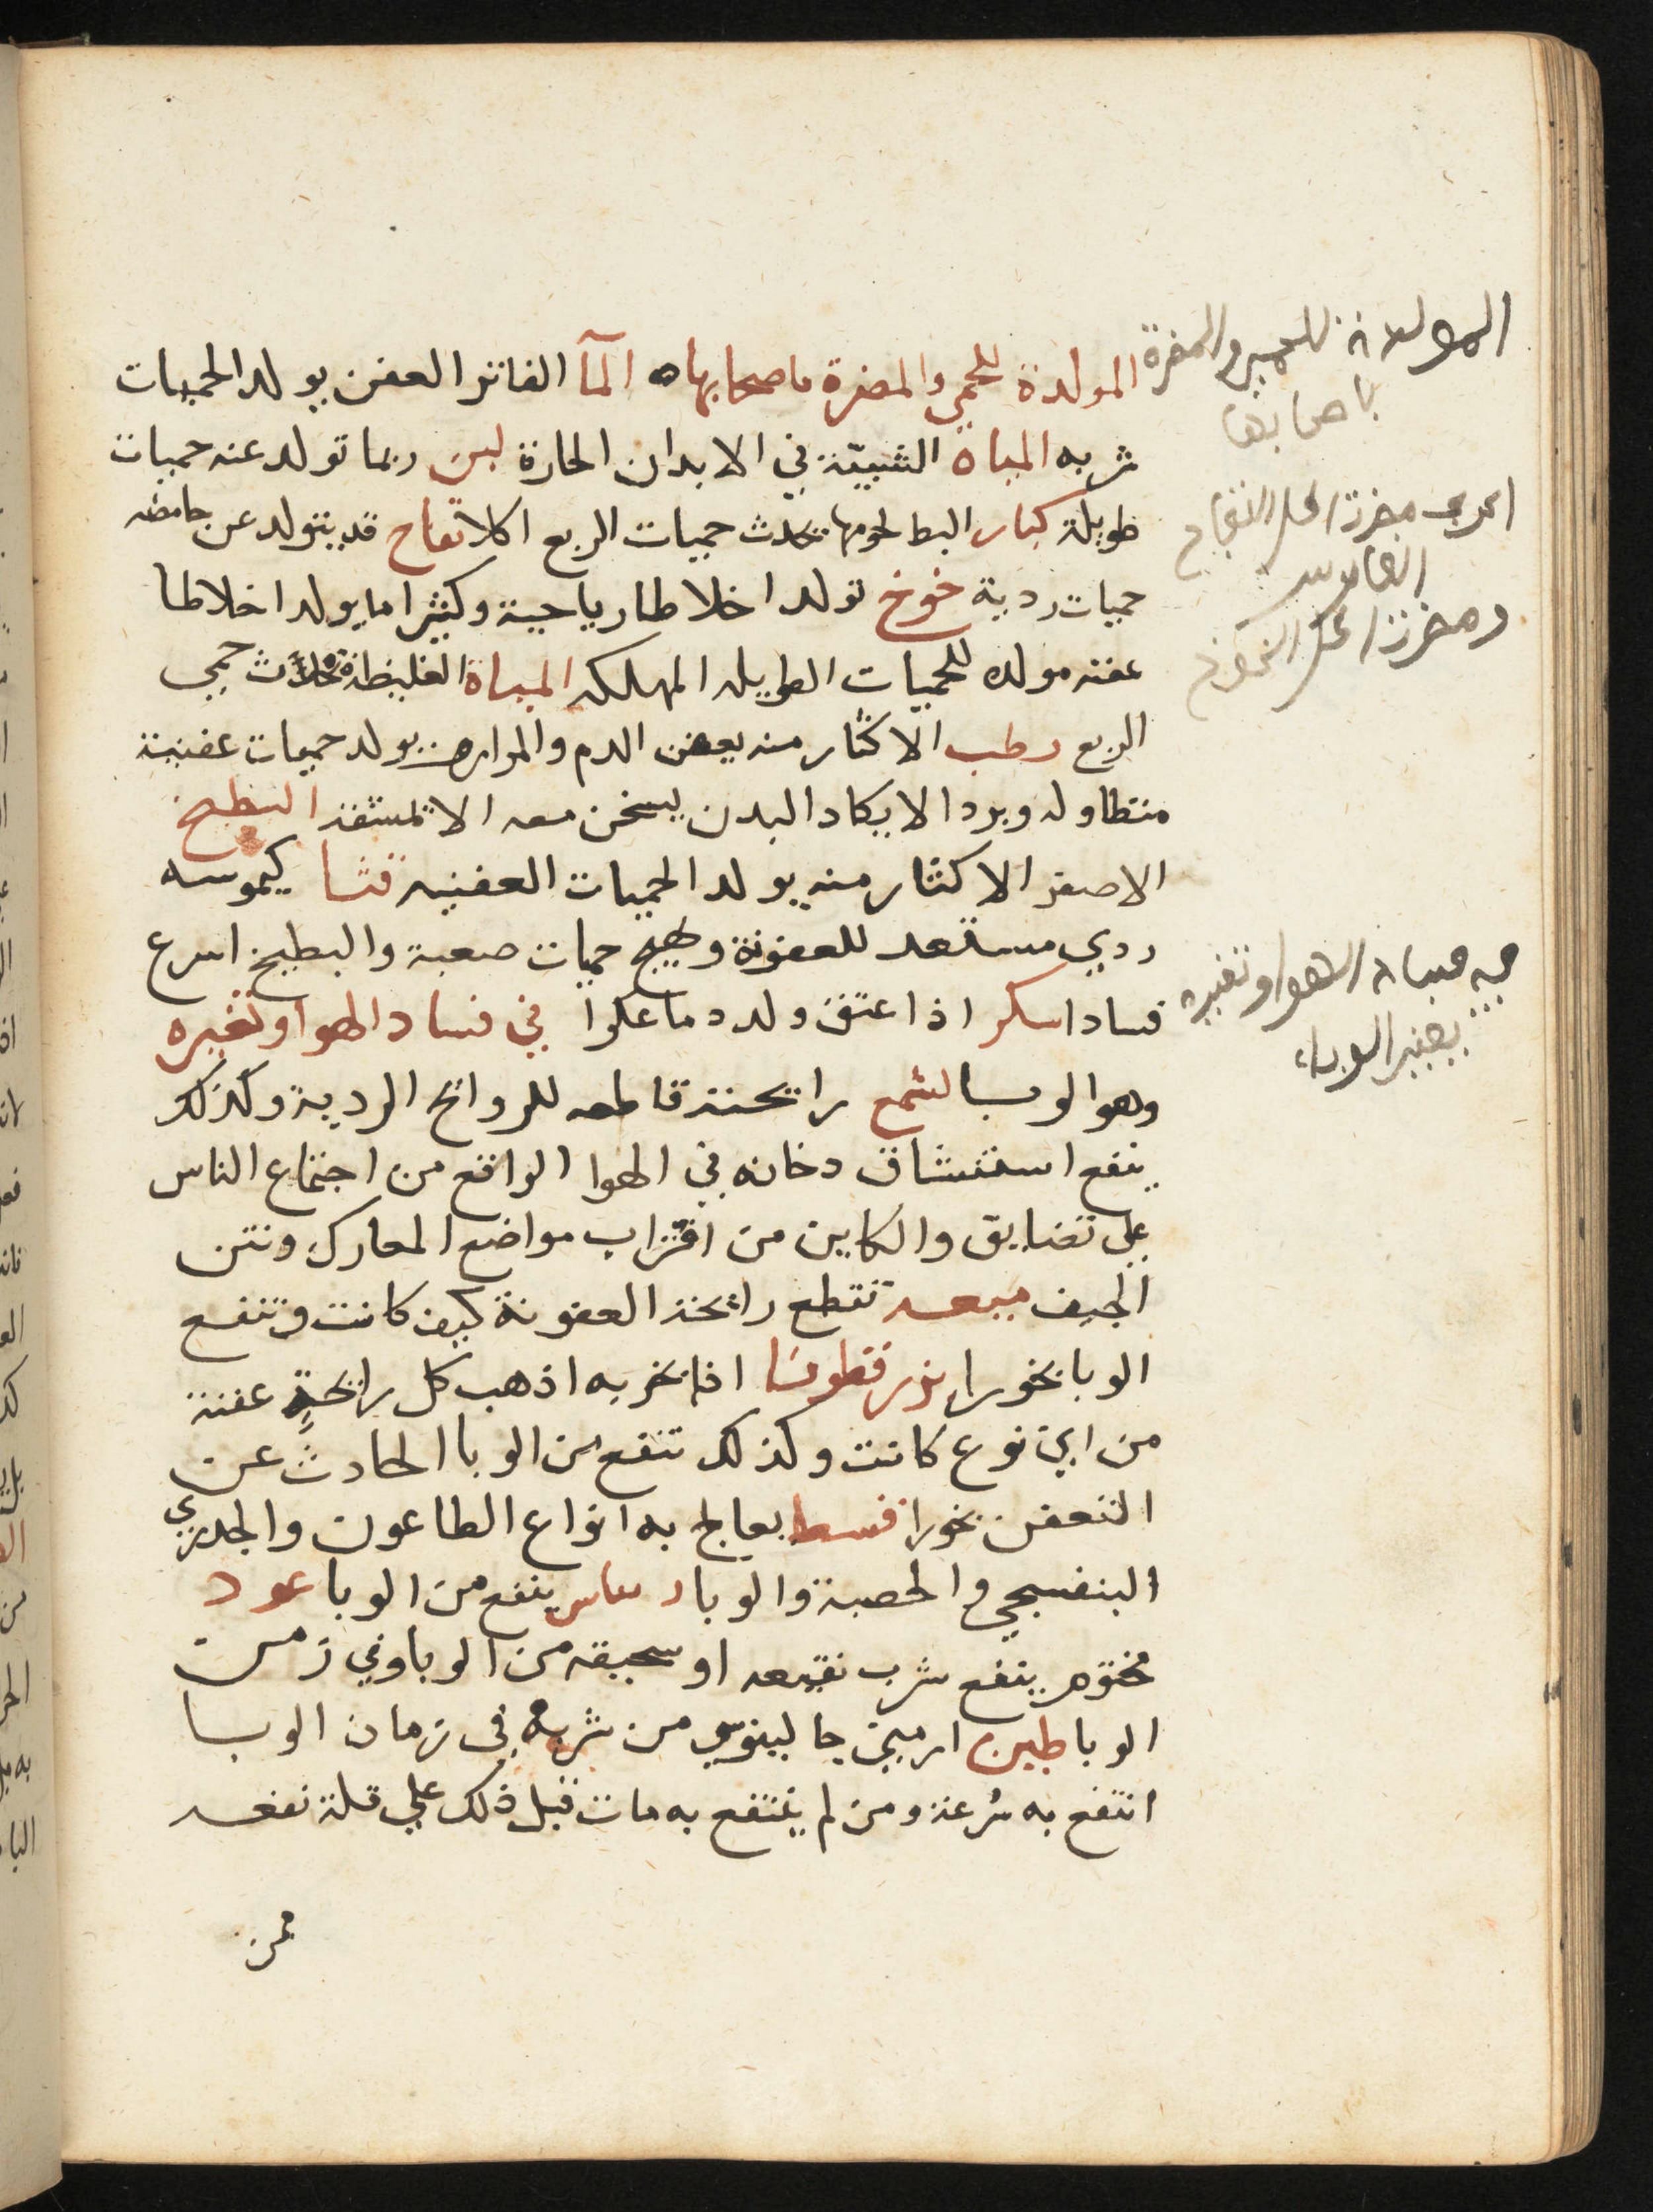 المولدة للحمي والمضرة باصحابها ه المآ الفاتر العفن يولد الحميات
شربه المياه الشبيّة في الابدان الحارة لبن ربما تولد عنه حميات
طويلة كبار البط لحومها تحدث حميات الربع اكلا تفاح قد يتولد عن حامضه
حميات ردية خوخ تولد اخلاطا رياحية وكثيرا ما يولد اخلاطا
عفنه مولده للحميات الطويله المهلكه المياه الغليظة تحدث حمي
الربع رطب الاكثار منه يعفن الدم والمرارهن يولد حميات عفنية
متطاوله وبردا لا يكاد البدن يسخن معه الا بمشقة البطيخ
الاصفر الاكثار منه يولد الحميات العفنيه قثا كيموسه
ردي مستعد للعفونة ويهيج حميات صعبة والبطيخ اسرع
فسادا سكر اذا عتق ولد دما عكرا في فساد الهوا وتغيره
وهو الوبا لشمع رايحته قاطعه للروائح الردية وكذلك
ينفع استنشاق دخانه في الهوا الواقع من اجتماع الناس
علي تضايق والكاين من اقتراب مواضع المعارك ونتن
الجيف ميعه تقطع رايحة العفونة كيف كانت وتنفع
الوبا بخورا بزرقطونا اذا بخر به اذهب كل رايحةٍ عفنة
من اي نوع كانت وكذلك تنفع من الوبا الحادث عن
التعفن بخورا قسط يعالج به انواع الطاعون والجدري
البنفسجي والحصبة والوبا ينفع من الوبا عود
مختوم ينفع شرب نقيعه او سحيقه من الوبا وفي زمن
الوبا طين ارميني جالينوس من شربه في زمان الوبا
انتفع به سُرعة ومن لم ينتفع به مات قبل ذلك علي قلة نفعه
ممن
المولدة للحمي والمضرة
باصحابها
مضرة اكل التفاح
ومضرة اكل الخوخ
فساد الهوا وتغيره
الوباء